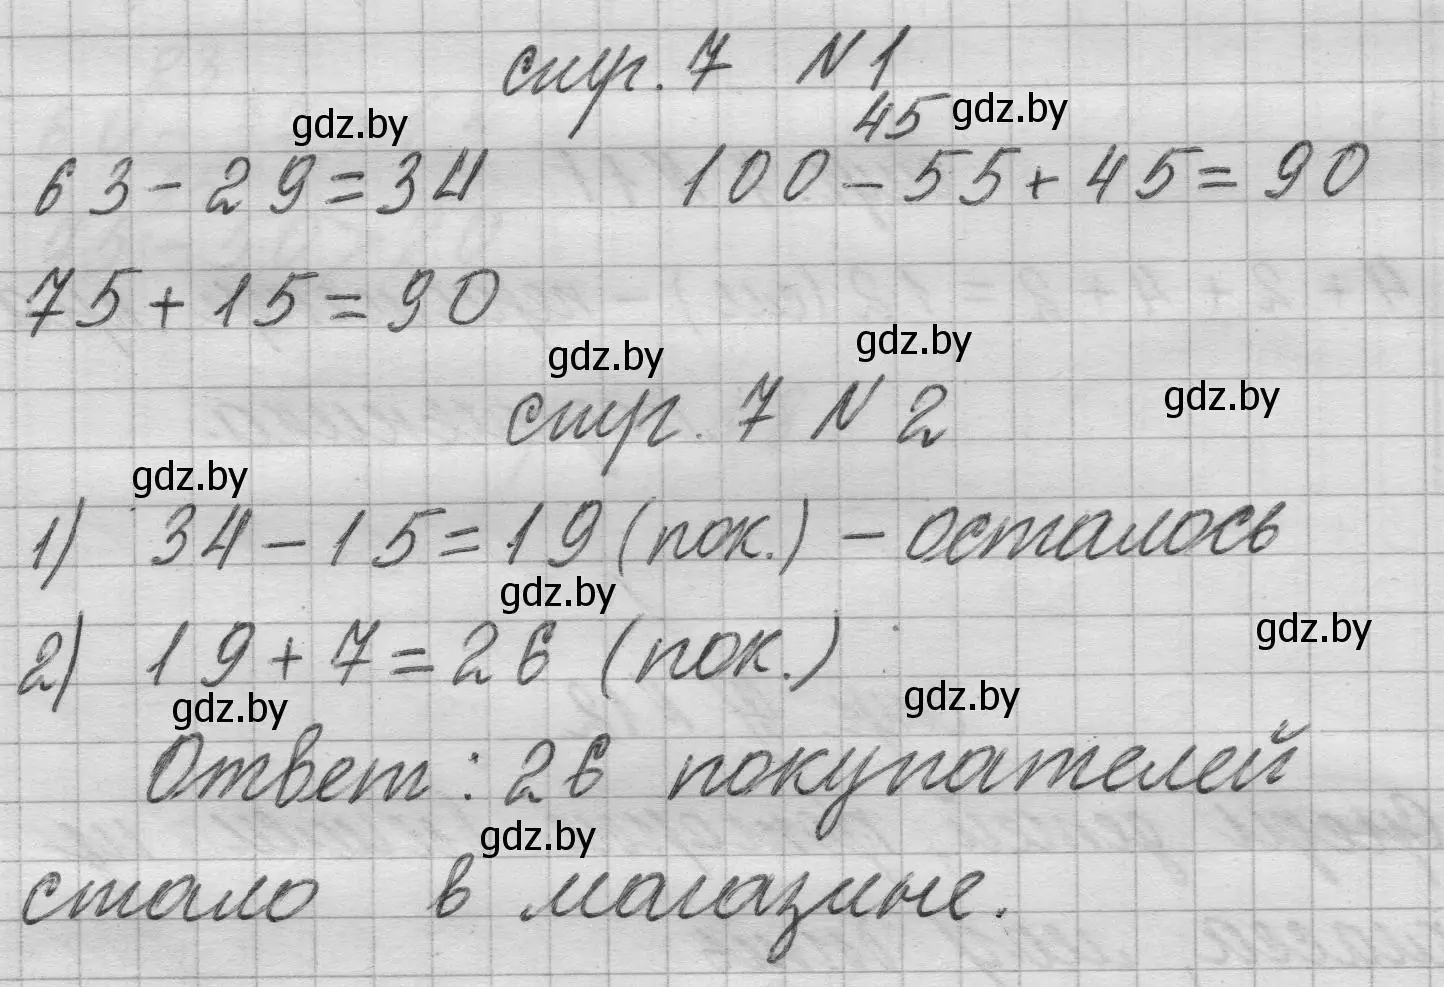 стр. 7 N 1
45 gdz.by
gdz.by
63-29=34 100-55+45=90
75+15=90
gdz.by gdz.by
gdz.by
стр. 7 N 2
gdz.by
1) 34-15=19 (пок.) - осталось
gdz.by
gdz.by
2) 19+7=26 (пок.)
gdz.by gdz.by
Ответ: 26 покупателей
gdz.by
стало в магазине.